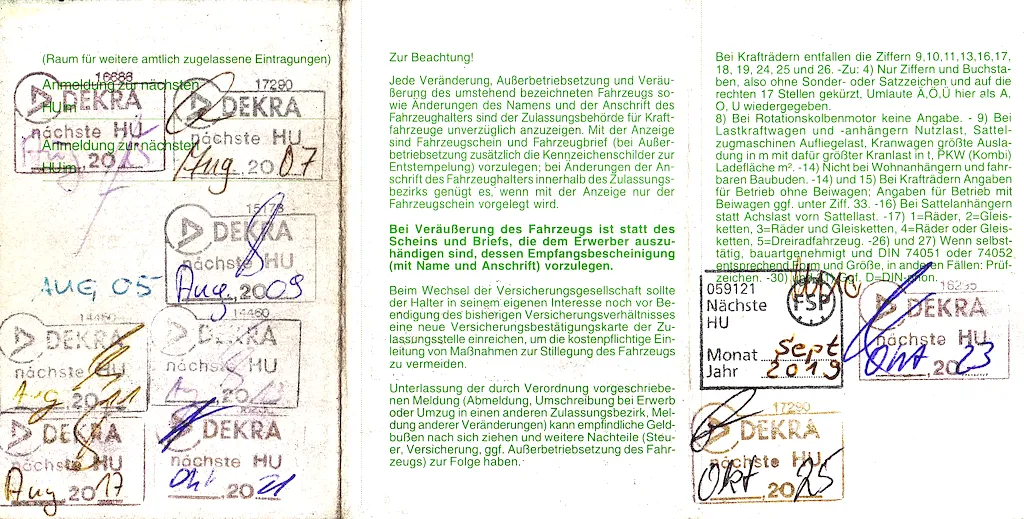 (Raum für weitere amtlich zugelassene Eintragungen)
Anmeldung zur nächsten
HU im
Anmeldung zur nächsten
HU im
16688
DEKRA
nächste HU
Aug 20
17290
DEKRA
nächste HU
Aug 2007
15178
DEKRA
nächste HU
Aug. 2009
AUG 05
14460
DEKRA
nächste HU
Aug 2011
14460
DEKRA
nächste HU
DEKRA
nächste HU
Aug 2017
DEKRA
nächste HU
Okt 2021
Zur Beachtung!
Jede Veränderung, Außerbetriebsetzung und Veräu-
ßerung des umstehend bezeichneten Fahrzeugs so-
wie Änderungen des Namens und der Anschrift des
Fahrzeughalters sind der Zulassungsbehörde für Kraft-
fahrzeuge unverzüglich anzuzeigen. Mit der Anzeige
sind Fahrzeugschein und Fahrzeugbrief (bei Außer-
betriebsetzung zusätzlich die Kennzeichenschilder zur
Entstempelung) vorzulegen; bei Änderungen der An-
schrift des Fahrzeughalters innerhalb des Zulassungs-
bezirks genügt es, wenn mit der Anzeige nur der
Fahrzeugschein vorgelegt wird.
Bei Veräußerung des Fahrzeugs ist statt des
Scheins und Briefs, die dem Erwerber auszu-
händigen sind, dessen Empfangsbescheinigung
(mit Name und Anschrift) vorzulegen.
Beim Wechsel der Versicherungsgesellschaft sollte
der Halter in seinem eigenen Interesse noch vor Be-
endigung des bisherigen Versicherungsverhältnisses
eine neue Versicherungsbestätigungskarte der Zu-
lassungsstelle einreichen, um die kostenpflichtige Ein-
leitung von Maßnahmen zur Stillegung des Fahrzeugs
zu vermeiden.
Unterlassung der durch Verordnung vorgeschriebe-
nen Meldung (Abmeldung, Umschreibung bei Erwerb
oder Umzug in einen anderen Zulassungsbezirk, Mel-
dung anderer Veränderungen) kann empfindliche Geld-
bußen nach sich ziehen und weitere Nachteile (Steu-
er, Versicherung, ggf. Außerbetriebsetzung des Fahr-
zeugs) zur Folge haben.
Bei Krafträdern entfallen die Ziffern 9,10,11,13,16,17,
18, 19, 24, 25 und 26. -Zu: 4) Nur Ziffern und Buchsta-
ben, also ohne Sonder- oder Satzzeichen und auf die
rechten 17 Stellen gekürzt, Umlaute Ä,Ö,Ü hier als A,
O, U wiedergegeben.
8) Bei Rotationskolbenmotor keine Angabe. - 9) Bei
Lastkraftwagen und -anhängern Nutzlast, Sattel-
zugmaschinen Aufliegelast, Kranwagen größte Aus-
ladung in m mit dafür größter Kranlast in t, PKW (Kombi)
Ladefläche m². -14) Nicht bei Wohnanhängern und fahr-
baren Baubuden. -14) und 15) Bei Krafträdern Angaben
für Betrieb ohne Beiwagen; Angaben für Betrieb mit
Beiwagen ggf. unter Ziff. 33. -16) Bei Sattelanhängern
statt Achslast vorn Sattellast. -17) 1=Räder, 2=Gleis-
ketten, 3=Räder und Gleisketten, 4=Räder oder Gleis-
ketten, 5=Dreiradfahrzeug. -26) und 27) Wenn selbst-
tätig, bauartgenehmigt und DIN 74051 oder 74052
entsprechend Form und Größe, in anderen Fällen: Prüf-
zeichen. -30) Ggf. D=DIN-phon.
059121
Nächste
HU
FSP
Monat Sept
Jahr 2019
DEKRA
nächste HU
Okt 2023
17290
DEKRA
nächste HU
Okt 2025